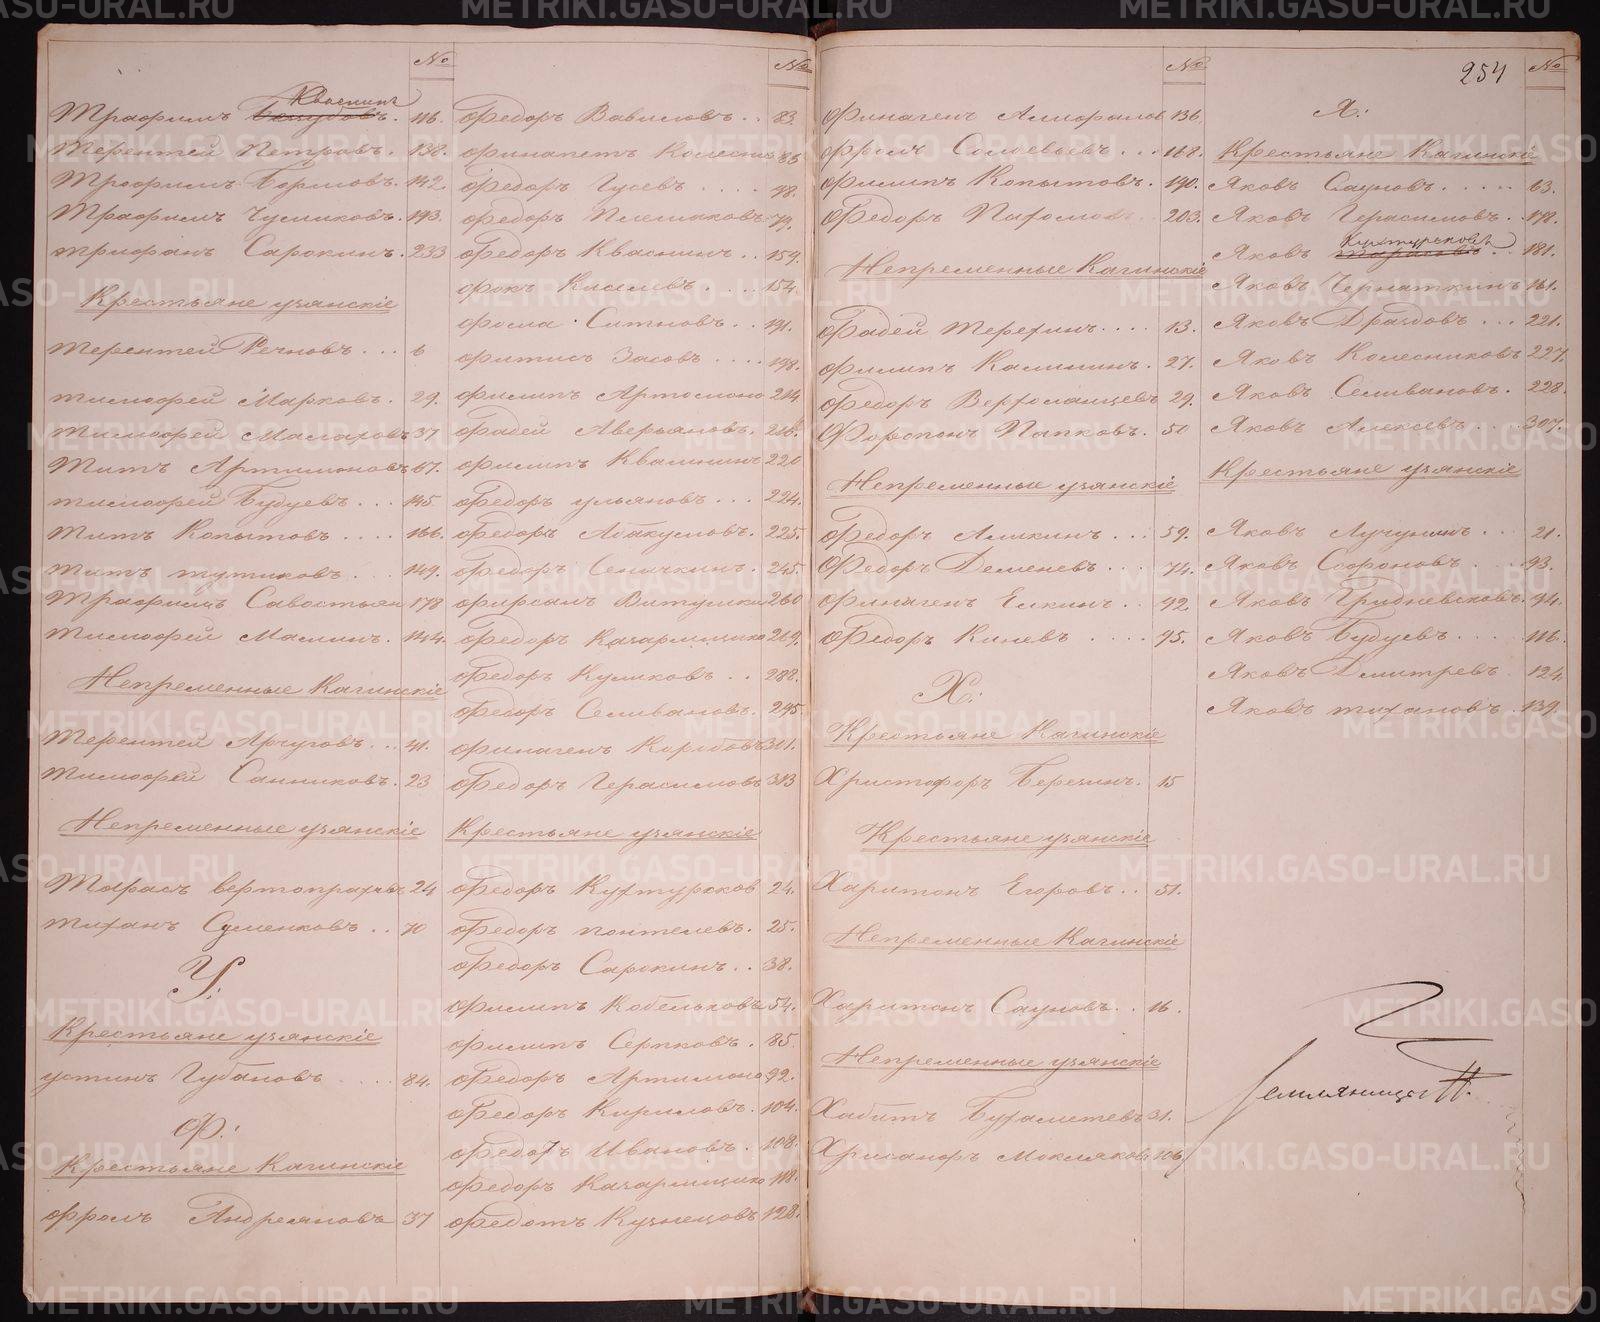 №
Трафимъ Бешубовъ. 116.
Квасникъ
Терентей Петровъ. 138.
Трафимъ Бормовъ. 142.
Трафимъ Чусмиковъ. 193.
Трифанъ Сарокинъ. 233
Крестьяне узянскіе
Терентей Речновъ... 6
Тимофей Марковъ. 29.
Тимофей Малаховъ 37
Титъ Артимоновъ 67.
Тимофей Бубуевъ... 145.
Титъ Копытовъ.... 166.
Титъ Тутиковъ... 149.
Трафимъ Савостьян 178
Тимофей Маминъ. 144.
Непременные Кагинскіе
Терентей Арчуговъ... 41.
Тимофей Санниковъ. 23
Непременные узянскіе
Тарасъ Вертопраховъ 24
Тиханъ Суменковъ.. 70
У.:
Крестьяне узянскіе
Устинъ Губановъ.... 84.
Ф.:
Крестьяне Кагинскіе
Фролъ Андреяновъ 37
№
Федоръ Вавиловъ.. 83.
Финапетъ Колесник 86
Федоръ Гусевъ.... 98.
Федоръ Племаковъ 79.
Федоръ Кваснинъ.. 159.
Фокъ Киселевъ.... 154
Фосла Ситновъ.. 191.
Фитисъ Засовъ.... 198.
Филипъ Артомоно 214
Фадей Аверьяновъ. 216.
Филипъ Квашнинъ 220
Федоръ Ульяновъ... 224.
Федоръ Абакумовъ. 225.
Федоръ Сеничкинъ. 245.
Фирсанъ Витушки 260
Федоръ Качармицико 269.
Федоръ Куликовъ.. 288.
Федоръ Селивановъ. 295
Финагенъ Коробовъ 301.
Федоръ Герасимовъ 313
Крестьяне узянскіе
Федоръ Кухтурсков 24.
Федоръ Понтелевъ. 25.
Федоръ Сарокинъ.. 38.
Филипъ Кобельковъ 54.
Филипъ Серпковъ. 85.
Федоръ Артимоно 92.
Федоръ Кириловъ. 104.
Федоръ Ивановъ. 108.
Федоръ Качармицико 118.
Федотъ Кузнецовъ 128.
№
Финагенъ Алифанов 136.
Фролъ Соловьевъ... 168.
Филипъ Копытовъ. 190.
Федоръ Пахомовъ.. 203.
Непременные Кагинскіе
Фадей Терехинъ.... 13.
Филипъ Калининъ. 27.
Федоръ Верхоланцевъ 29.
Форспонъ Папковъ. 51
Непременные узянскіе
Федоръ Аликинъ... 59.
Федоръ Деменевъ... 74.
Финагенъ Елкинъ.. 92.
Федоръ Киневъ.... 95.
Х.:
Крестьяне Кагинскіе
Христофоръ Березинъ. 15
Крестьяне узянскіе
Харитонъ Егоровъ.. 51.
Непременные Кагинскіе
Харитонъ Сауновъ.. 16.
Непременные узянскіе
Хабитъ Бухаметевъ 31.
Хрисанфъ Мокляковъ 106
254 №
Я.:
Крестьяне Кагинскіе
Яковъ Сауновъ..... 63.
Яковъ Герасимовъ.. 178.
Кухтурсковъ
Яковъ Тарасовъ.. 181.
Яковъ Черняткинъ 161.
Яковъ Драздовъ... 221.
Яковъ Колесниковъ 227.
Яковъ Селивановъ. 228.
Яковъ Алексевъ... 307.
Крестьяне узянскіе
Яковъ Лучунинъ... 21.
Яковъ Софроновъ... 93.
Яковъ Гридневсковъ. 94.
Яковъ Бубуевъ.... 116.
Яковъ Дмитревъ. 124.
Яковъ Тихановъ.. 139.
METRIKI.GASO-URAL.RU